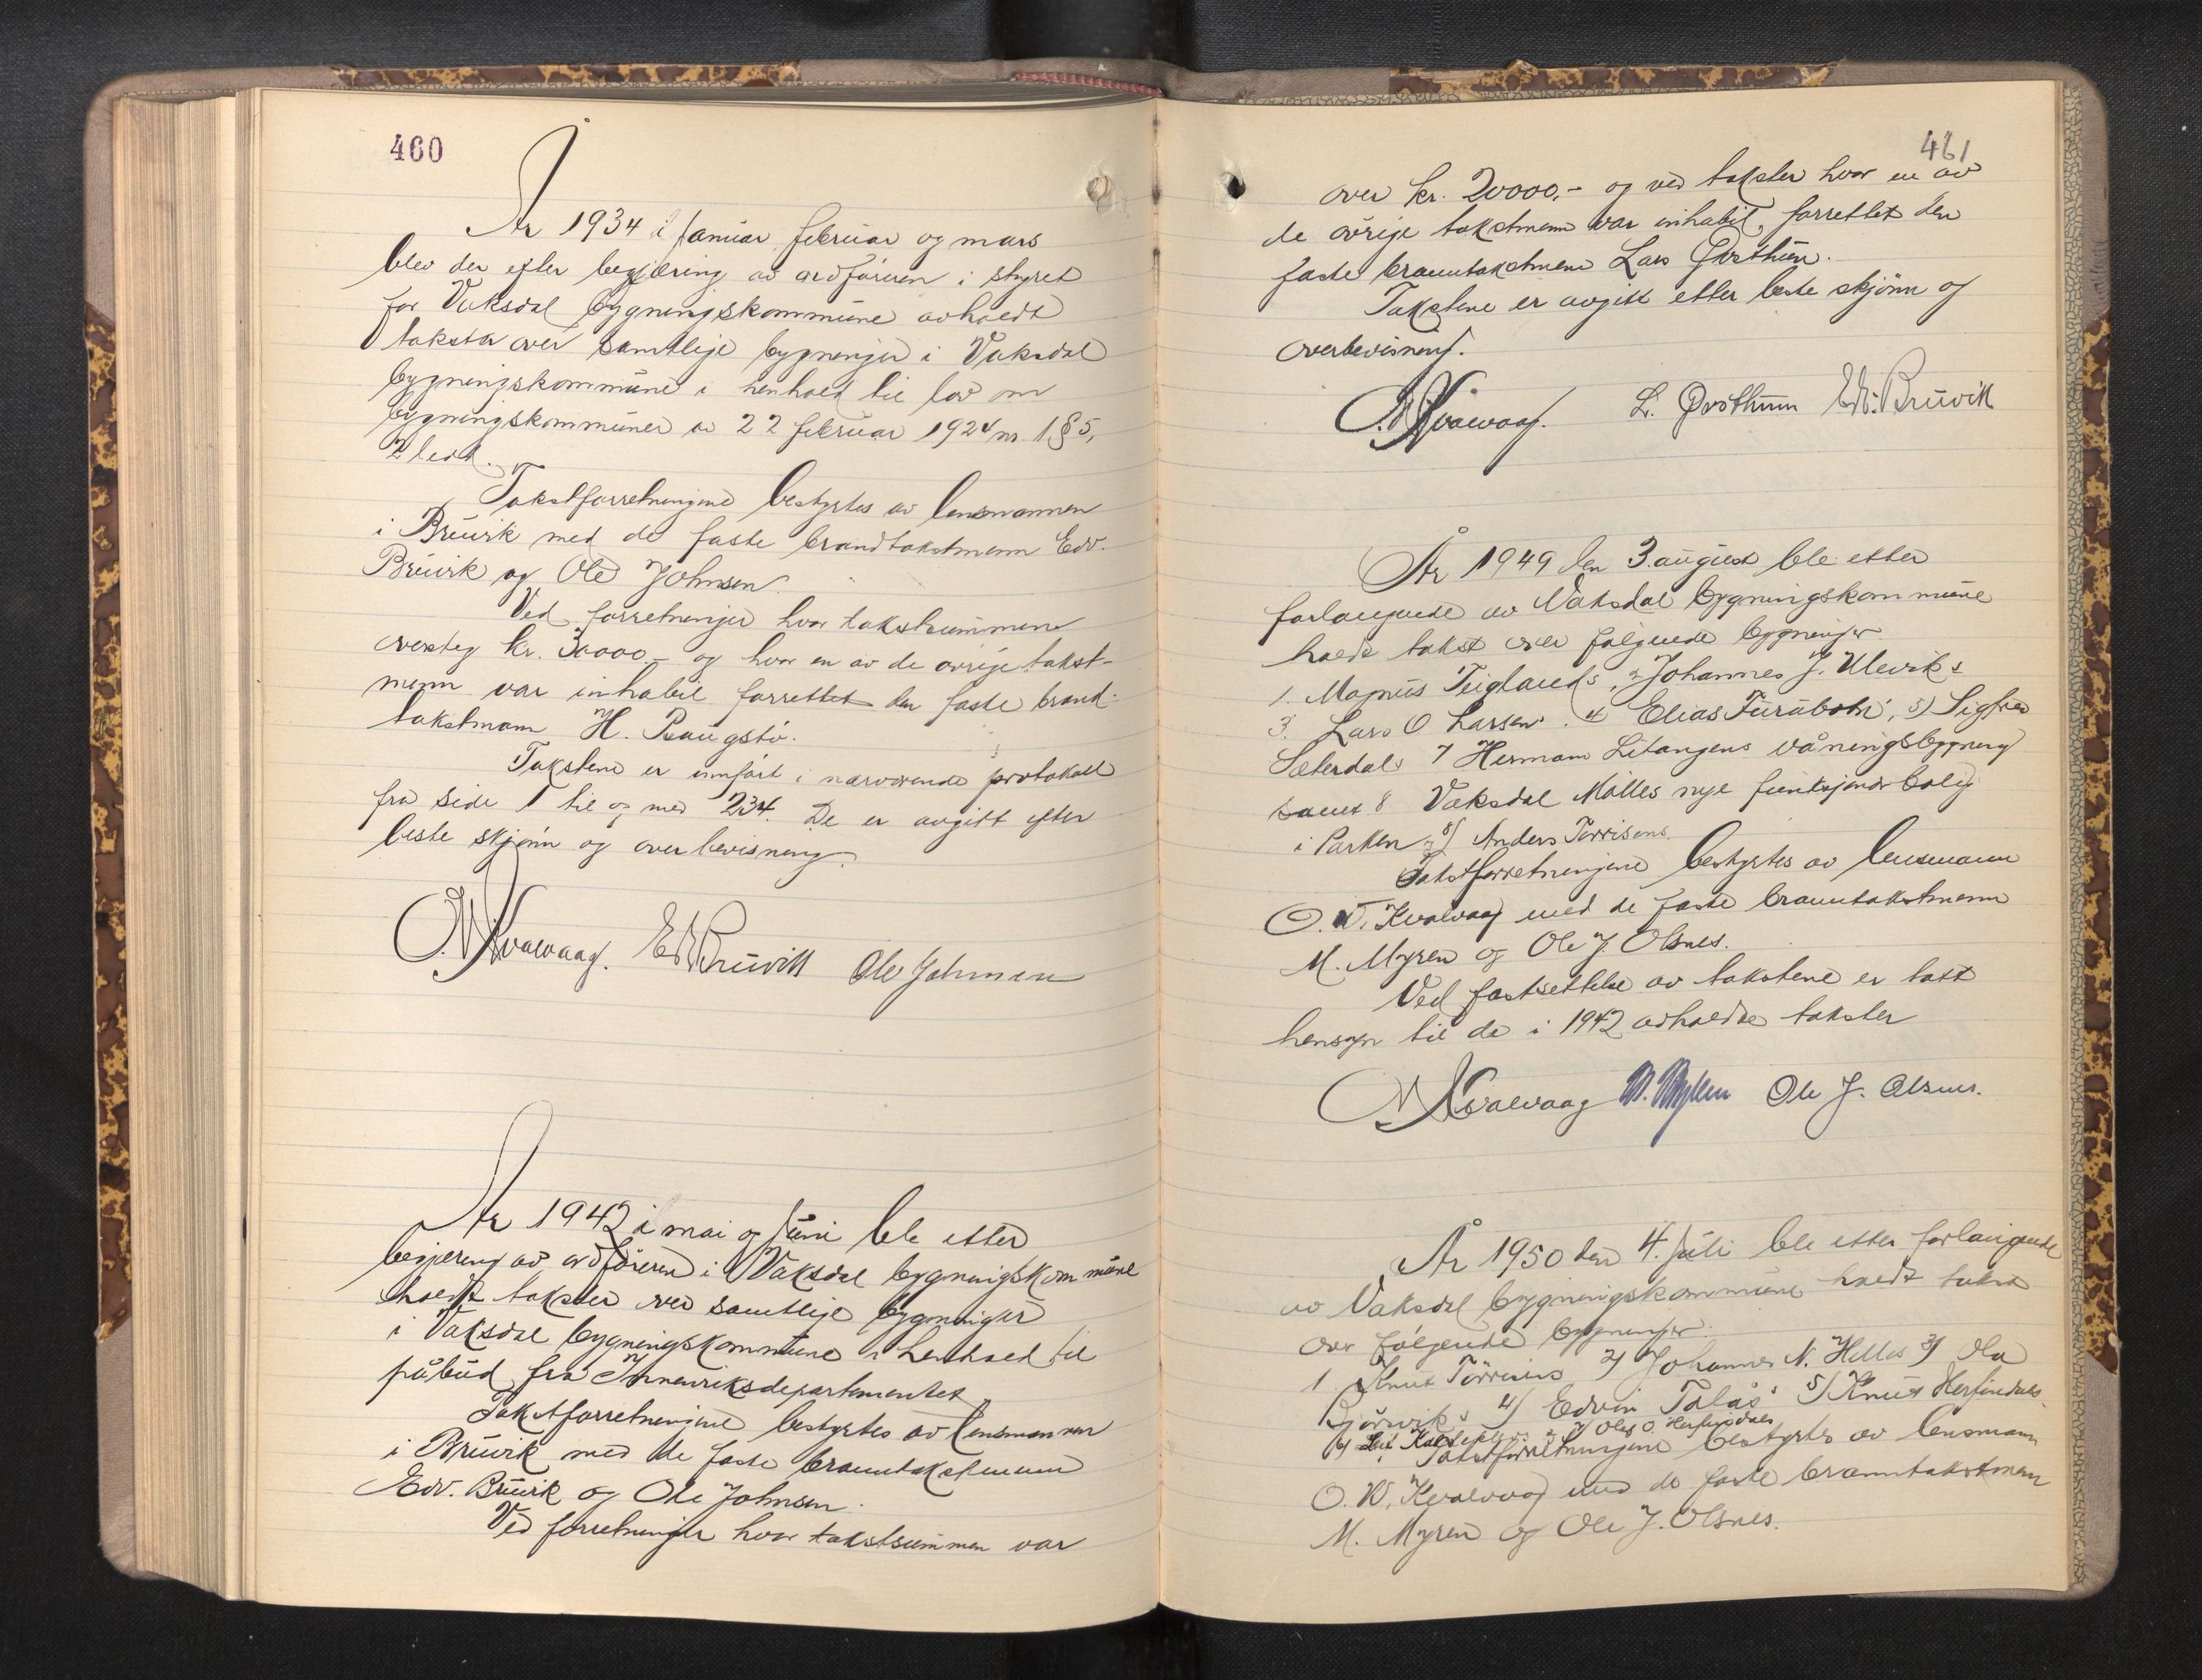 460
År 1934 i januar februar og mars
blev der efter begjæring av ordføreren i styret
for Vaksdal bygningskommune avholdt
takster over samtlige bygninger i Vaksdal
bygningskommune i henhold til lov om
bygningskommuner av 22 februar 1924 nr. 1 § 5,
2 ledd.
Takstforretningene bestyrtes av lensmannen
i Bruvik med de faste brandtakstmenn Edv.
Bruvik og Ole Johnsen.
Ved forretninger hvor takstsummen
oversteg kr. 30000,- og hvor en av de øvrige takst-
menn var inhabil forrettet den faste brand-
takstmann H. Raugstø.
Takstene er innført i nærværende protokoll
fra side 1 til og med 234. De er avgitt efter
beste skjønn og overbevisning.
O.W. Kvalvaag. Edv. Bruvik Ole Johnsen
År 1942 i mai og juni ble etter
begjæring av ordføreren i Vaksdal bygningskommune
holdt takster over samtlige bygninger
i Vaksdal bygningskommune i henhold til
påbud fra Innenriksdepartementet
Takstforretningene bestyrtes av lensmannen
i Bruvik med de faste branntakstmenn
Edv. Bruvik og Ole Johnsen.
Ved forretninger hvor takstsummen var
461
over kr. 20000,- og ved takster hvor en av
de øvrige takstmenn var inhabil, forrettet den
faste branntakstmenn Lars Øvsthun.
Takstene er avgitt etter beste skjønn og
overbevisning.
O.W. Kvalvaag. L. Øvsthun Edv. Bruvik
År 1949 den 3. august ble etter
forlangende av Vaksdal bygningskommune
holdt takst over følgende bygninger
1. Magnus Teiglands, 2 Johannes J. Uleviks
3. Lars O. Larsen. 4 Elias Furubotn, 5) Sigfred
Sæterdals 7 Hermann Litangens våningsbygning
samt 8 Vaksdal Mølles nye funksjonærbolig
i Parken og 8) Anders Tørrisens
Takstforretningene bestyrtes av lensmann
O. W. Kvalvaag med de faste branntakstmenn
M. Myren og Ole J. Olsnes.
Ved fastsettelse av takstene er tatt
hensyn til de i 1942 avholdte takster
O.W. Kvalvaag M. Myren Ole J. Olsnes.
År 1950 den 4. juli ble etter forlangende
av Vaksdal bygningskommune holdt takst
over følgende bygninger:
1 Knut Tørrisens 2) Johannes N. Helles 3) Ola
Bjørsviks 4) Edvin Talås 5) Knut Herfindals
6) Leif 7) Olaf O. Herfindals
Takstforretningene bestyrtes av lensmann
O. W. Kvalvaag med de faste branntakstmenn
M. Myren og Ole J. Olsnes.